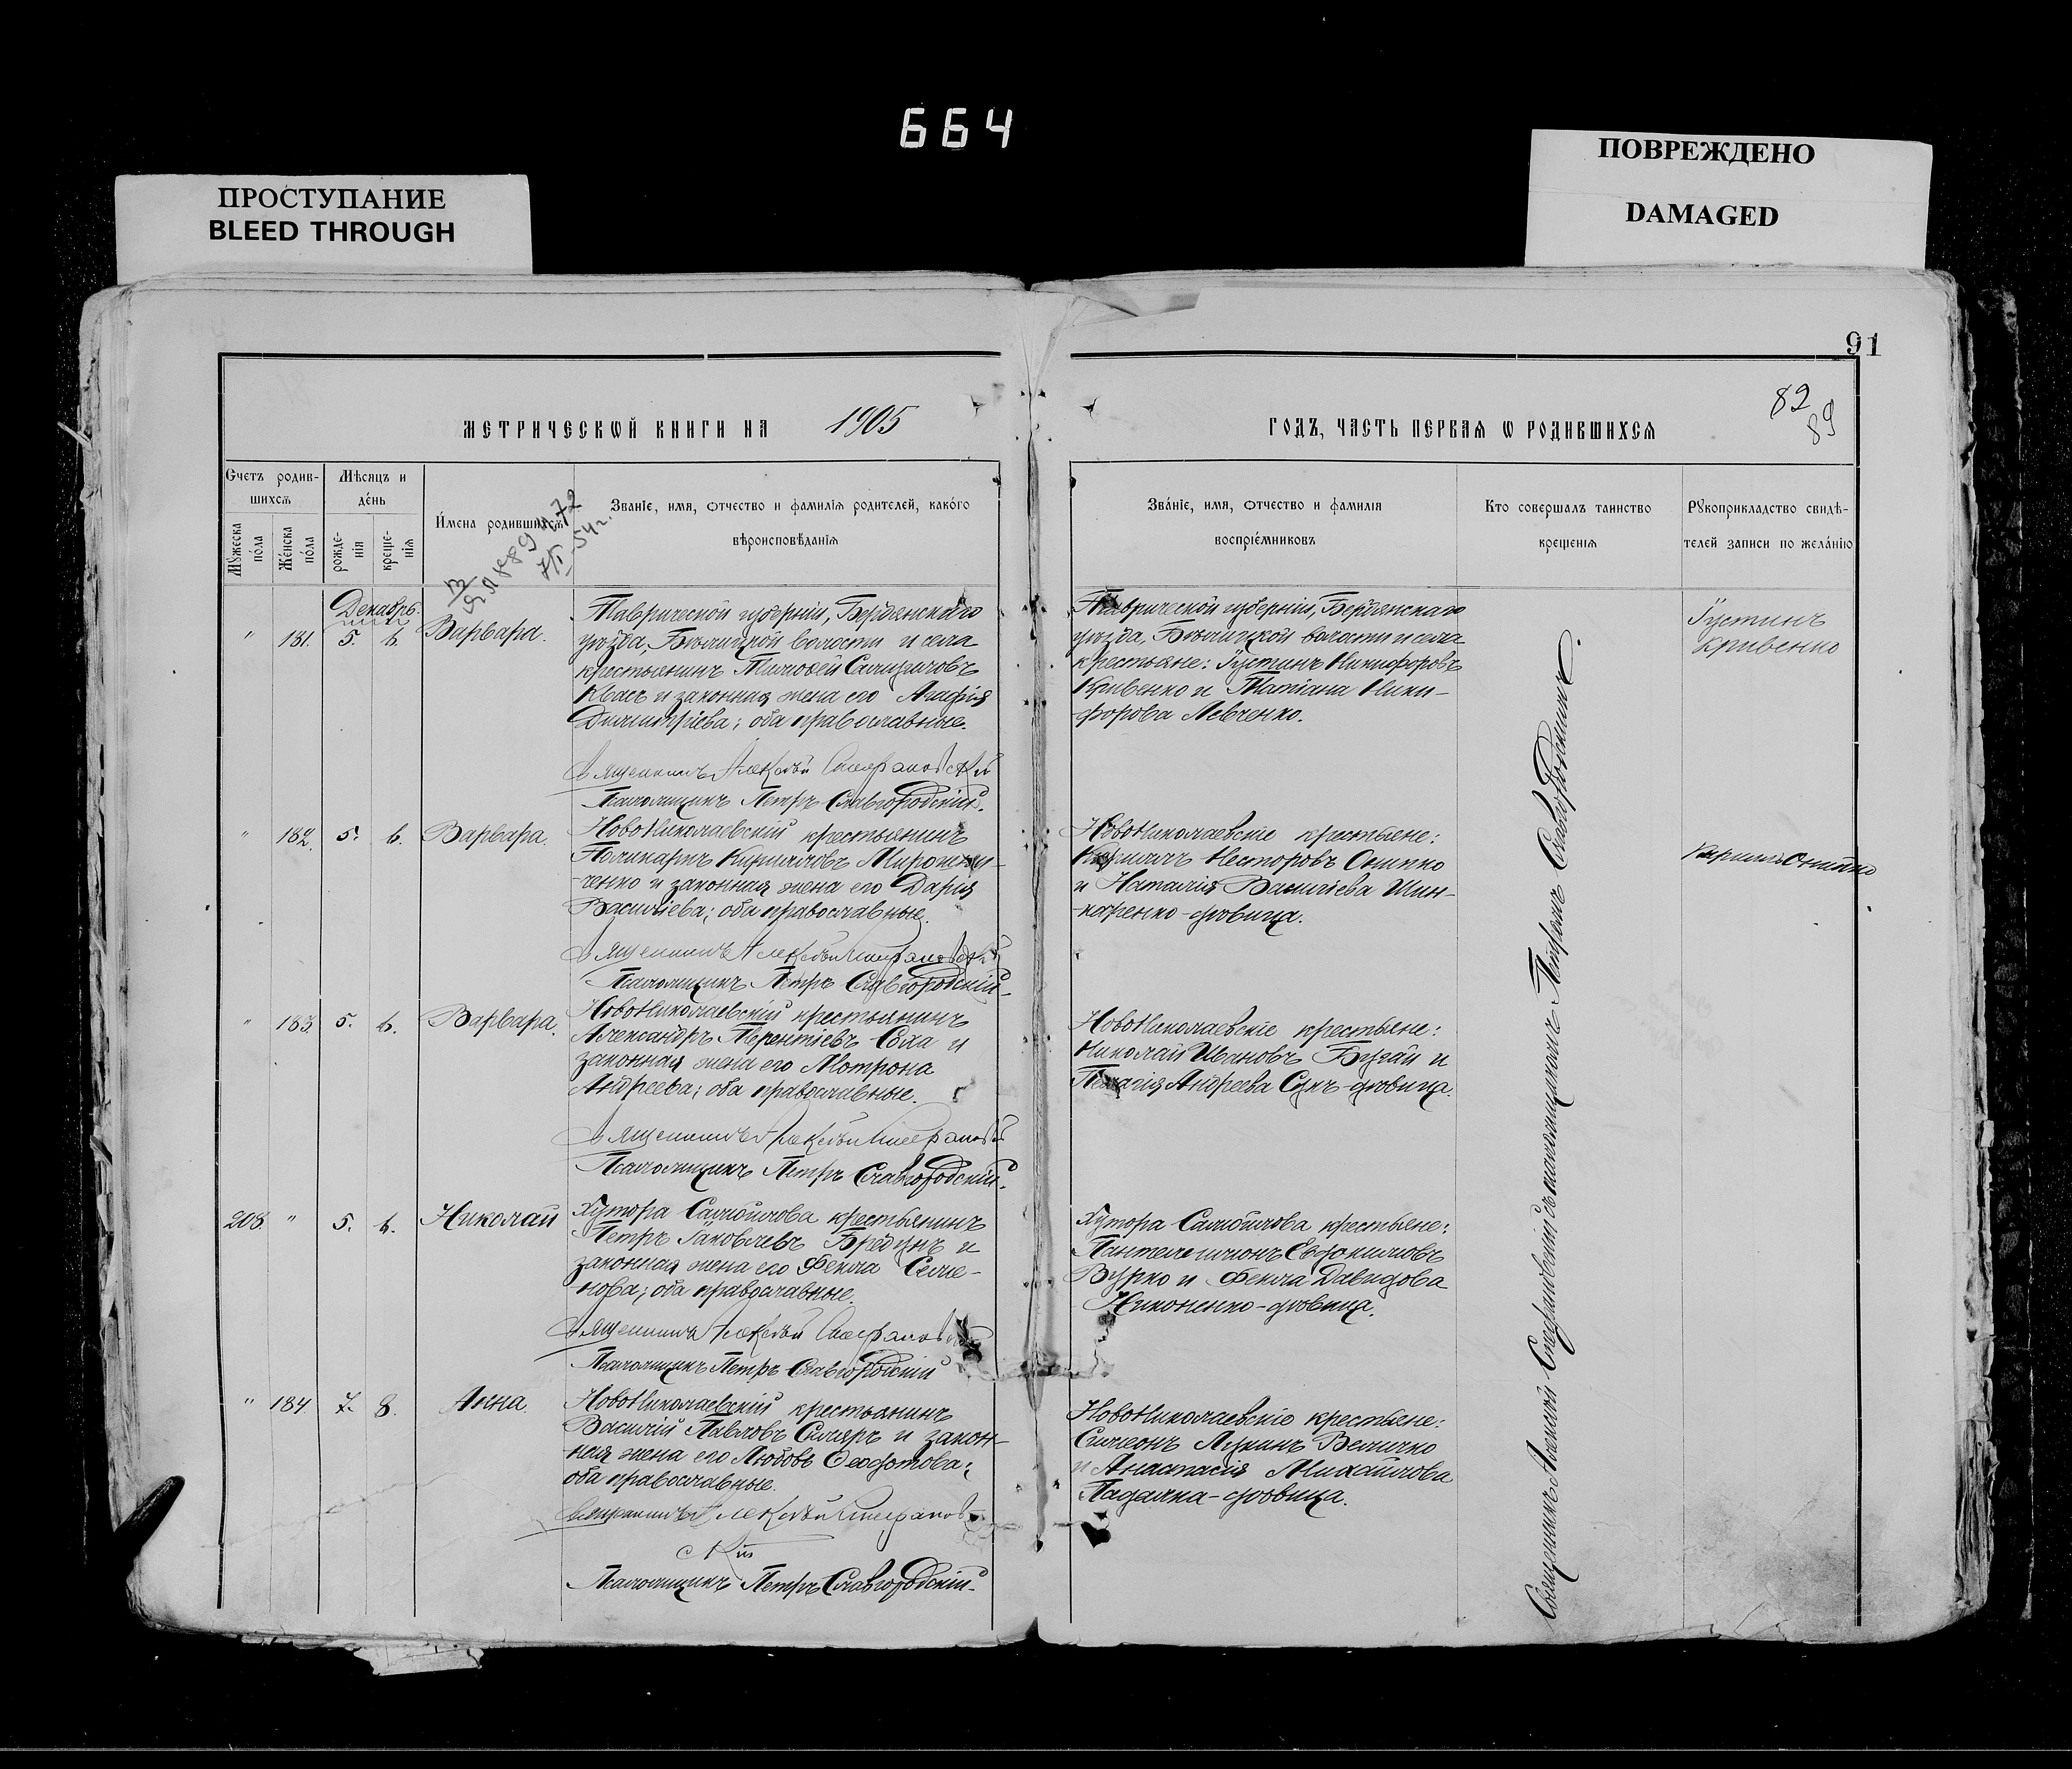 664
ПРОСТУПАНИЕ
BLEED THROUGH
ПОВРЕЖДЕНО
DAMAGED
91
82
89
МЕТРИЧЕСКѠЙ КНИГИ НА 1905
ГОДЪ, ЧАСТЬ ПЕРВАѦ Ѡ РОДИВШИХСѦ
Счетъ родив-
шихсѧ
Мѣсѧцъ и
де́нь
Мꙋжеска по́ла
Же́нска по́ла
рожде-
нїѧ
креще-
нїѧ
И́мена родившихсѧ
Званїе, имѧ, ѻтчество и фамилїѧ родителей, како́го
вѣроисповѣданїѧ
Зва́нїе, имѧ, ѻтчество и фамилїѧ
воспрїе́мниковъ
Кто совершалъ таинство
крещенїѧ
Рꙋкоприкладство свидѣ-
телей записи по жела́нїю
Декабрь
" 181. 5. 6. Варвара.
Таврической губерніи, Бердянскаго
уѣзда, Бѣлицкой волости и села
крестьянинъ
Квасъ и законная жена его Агафія
Димитріева; оба православные.
Священникъ Алексѣй Стефановскій
Псаломщикъ Петръ Славгородскій.
Таврической губерніи, Бердянскаго
уѣзда, Бѣлицкой волости и села
крестьяне: Іустинъ Никифоровъ
Кривенко и Татіана Ники-
форова Левченко.
Іустинъ
Кривенко
" 182. 5. 6. Варвара.
Новониколаевскій крестьянинъ
Поликарпъ Кирилловъ Мирошни-
ченко и законная жена его Дарія
Васильева; оба православные.
Священникъ Алексѣй Стефановскій
Псаломщикъ Петръ Славгородскій.
Новониколаевскіе крестьяне:
Кириллъ Несторовъ Онипко
и Наталія Васильева Шин-
каренко-дѣвица.
Кирилъ Онипко
" 183. 5. 6. Варвара.
Новониколаевскій крестьянинъ
Александръ Терентіевъ Соха и
законная жена его Мотрона
Андреева; оба православные.
Священникъ Алексѣй Стефановскій
Псаломщикъ Петръ Славгородскій.
Новониколаевскіе крестьяне:
Николай Ивановъ Бугай и
Пелагія Андреева Сукъ-дѣвица.
208. " 5. 6. Николай
Хутора Самойлова крестьянинъ
Петръ Іаковлевъ Бредунъ и
законная жена его Фекла Семе-
нова; оба православные.
Священникъ Алексѣй Стефановскій
Псаломщикъ Петръ Славгородскій
Хутора Самойлова крестьяне:
Пантелеимонъ Евфимовъ
Вурко и Фекла Давидова
Никоненко-дѣвица.
" 184 7. 8. Анна.
Новониколаевскій крестьянинъ
Василій Павловъ Скляръ и закон-
ная жена его Любовь Феодотова;
оба православные.
Священникъ Алексѣй Стефанов
скій
Псаломщикъ Петръ Славгородскій.
Новониколаевскіе крестьяне:
Симеонъ Лукинъ Величко
и Анастасія Михайлова
Падалка-дѣвица.
Священникъ Алексѣй Стефановскій съ псаломщикомъ Петромъ Славгородскимъ.